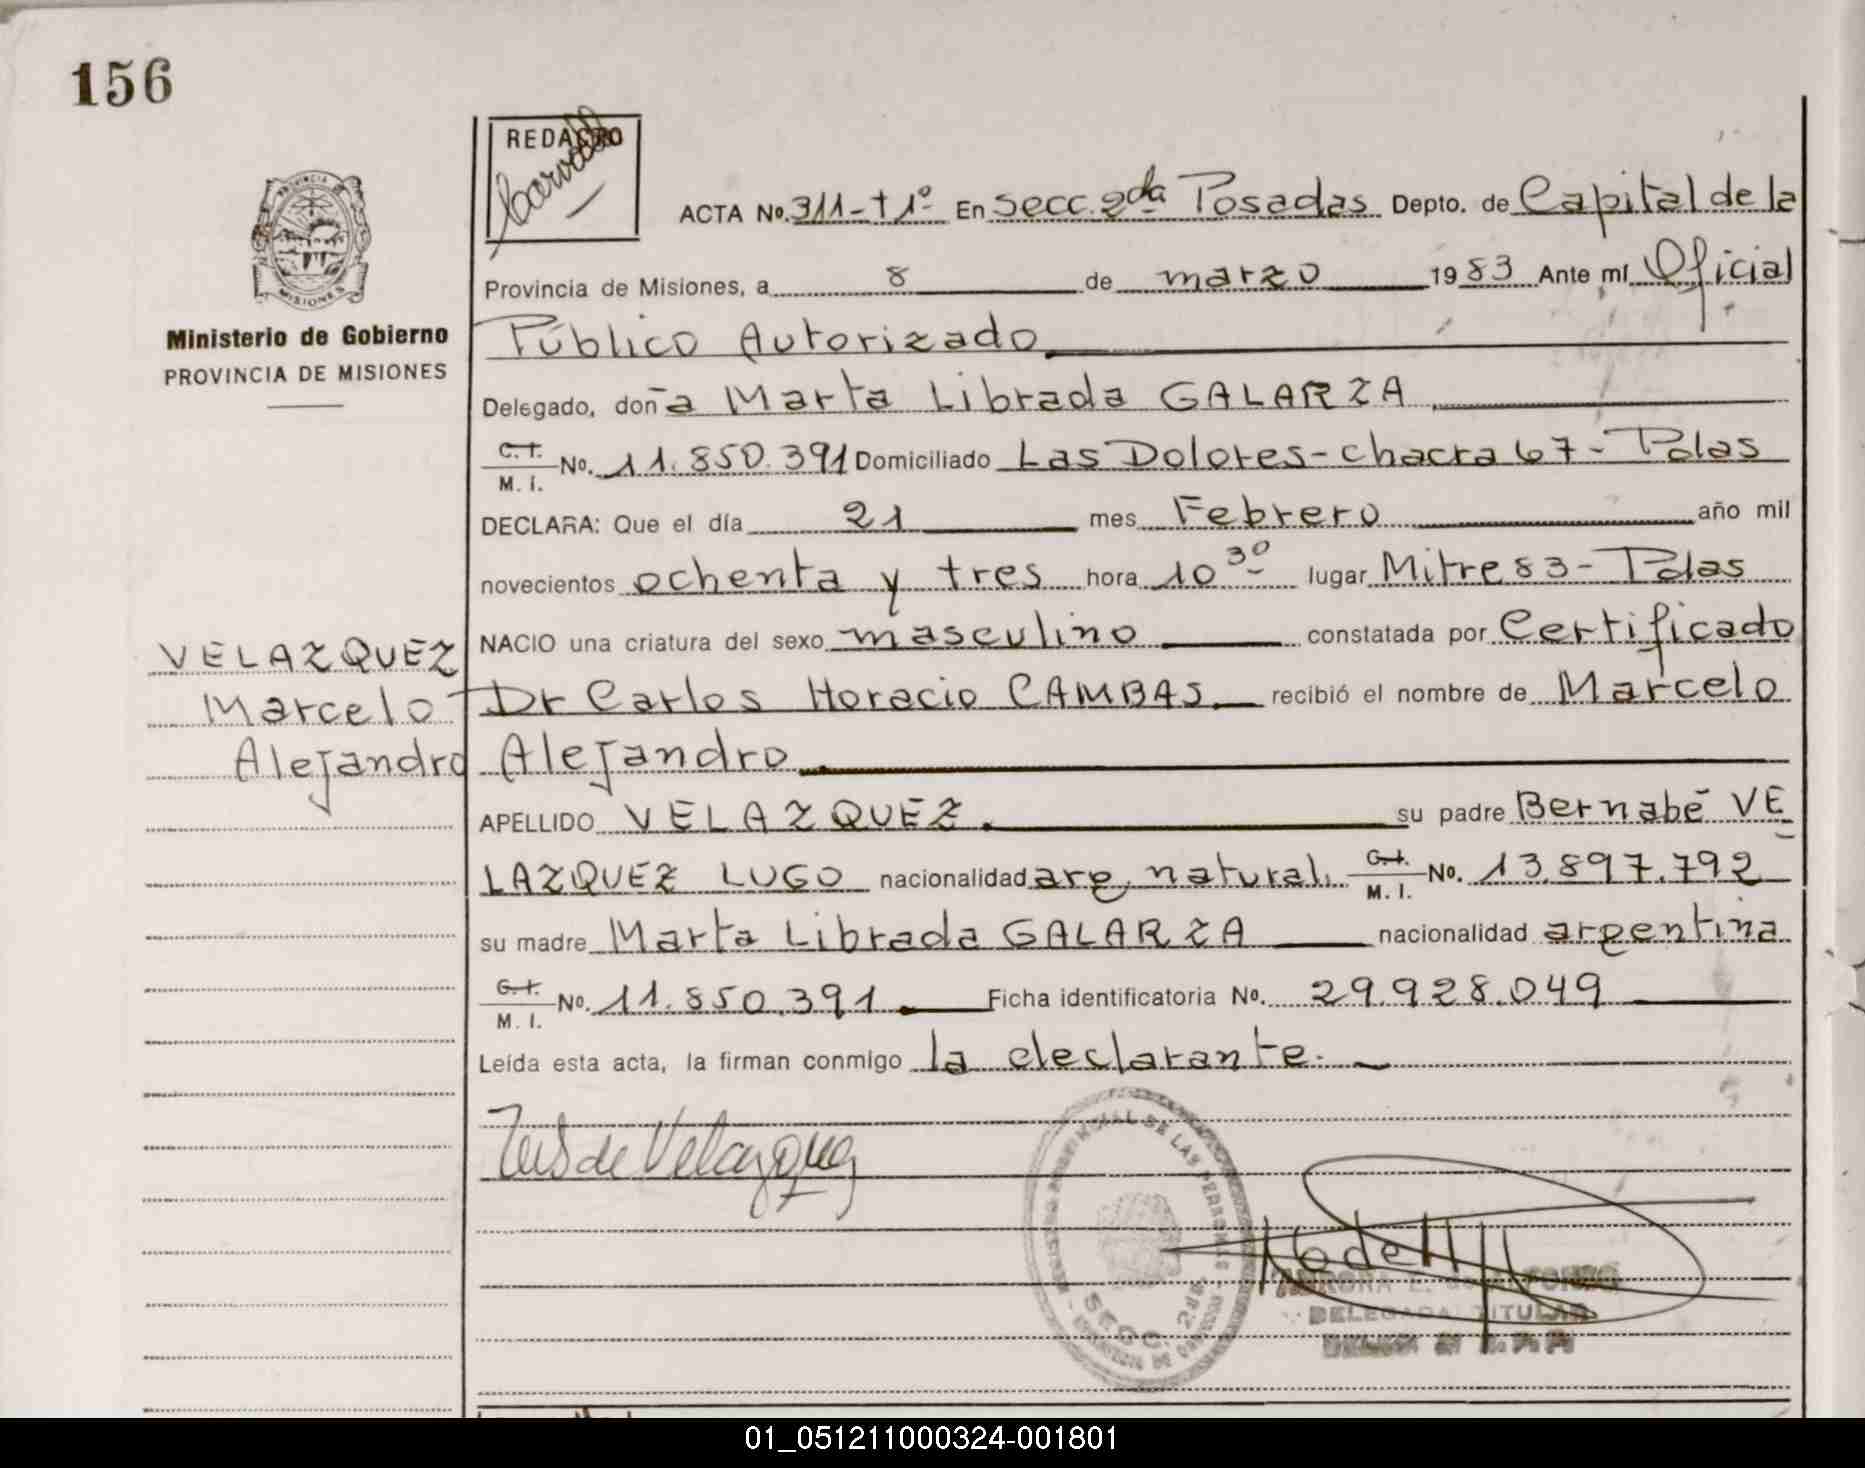 156
REDACTO
ACTA No. 311-T1º En Secc. 2da Posadas Depto. de Capital de la
Provincia de Misiones, a 8 de marzo 1983 Ante mí Oficial
Ministerio de Gobierno
PROVINCIA DE MISIONES
Público Autorizado
Delegado, doña Marta Librada GALARZA
C.I. M. I. No. 11.850.391 Domiciliado Las Dolores-chacra 67-Pdas
DECLARA: Que el día 21 mes Febrero año mil
novecientos ochenta y tres hora 10 30 lugar Mitre 83-Pdas
NACIO una criatura del sexo masculino constatada por Certificado
VELAZQUEZ
Marcelo
Alejandro
Dr Carlos Horacio CAMBAS recibió el nombre de Marcelo
Alejandro
APELLIDO VELAZQUEZ. su padre Bernabé VE
LAZQUEZ LUGO nacionalidad arg. natural. C.I. M. I. No. 13.897.792
su madre Marta Librada GALARZA nacionalidad argentina
C.I. M. I. No. 11.850.391. Ficha identificatoria No. 29.928.049
Leída esta acta, la firman conmigo la declarante.
de Velazquez
PROVINCIAL DE LAS PERSONAS
SECC. 2da
DELEGADA TITULAR
01_051211000324-001801